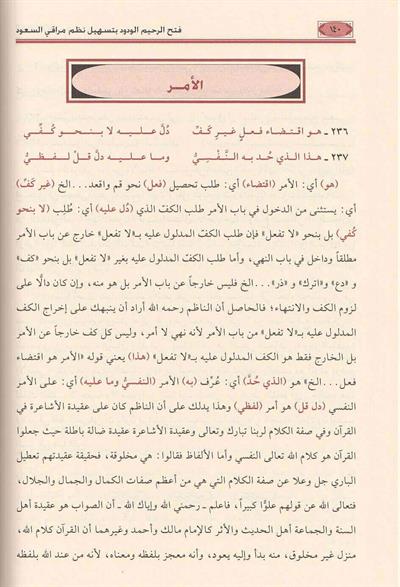 ١٤٠
فتح الرحيم الودود بتسهيل نظم مراقي السعود
الأمـر
٢٣٦ ـ هو اقتضاء فعلٍ غيرِ كَفِّ دُلَّ عليه لا بنحوِ كُفّي
٢٣٧ ـ هذا الذي حُد به النَّفْسِيُّ وما عليه دلَّ قلْ لفظيُّ
(هو) أي: الأمر (اقتضاء) أي: طلب تحصيل (فعل) نحو قم واقعد... الخ (غير كفّ)
أي: يستثنى من الدخول في باب الأمر طلب الكفّ الذي (دُل عليه) أي: طُلِب (لا بنحو
كُفي) بل بنحو «لا تفعل» فإن طلب الكفّ المدلول عليه بـ«لا تفعل» خارج عن الأمر
مطلقاً وداخل في باب النهي، وأما طلب الكفّ المدلول عليه بغير «لا تفعل» بل بنحو «كف»
و «دع» و«اترك» و «ذر»... الخ فليس خارجاً عن باب الأمر بل هو منه، وإن كان دالًا على
لزوم الكف والانتهاء؛ فالحاصل أن الناظم رحمه الله أراد أن ينبهك على إخراج الكف
المدلول عليه بـ«لا تفعل» من باب الأمر لأنه نهي لا أمر، وليس كل كف خارجاً عن الأمر
بل الخارج فقط هو الكف المدلول عليه بـ«لا تفعل» (هذا) يعني قوله «الأمر هو اقتضاء
فعل...الخ» هو (الذي حُدَّ) أي: عُرِّف (به) الأمر (النفسيُّ وما عليه) أي: على الأمر
النفسي (دل قل) هو أمر (لفظي) وهذا يدلك على أن الناظم كان على عقيدة الأشاعرة في
القرآن وفي صفة الكلام لربنا تبارك وتعالى وعقيدة الأشاعرة عقيدة ضالة باطلة حيث جعلوا
القرآن هو كلام الله تعالى النفسي وأما الألفاظ فقالوا: هي مخلوقة، فحقيقة عقيدتهم تعطيل
الباري جل وعلا عن صفة الكلام التي هي من أعظم صفات الكمال والجمال والجلال،
فتعالى الله عن قولهم علوًّا كبيراً، فاعلم ـ رحمني الله وإياك الله ـ أن الصواب هو عقيدة أهل
السنة والجماعة أهل الحديث والأثر كالإمام مالك وأحمد وغيرهما أن القرآن كلام الله،
منزل غير مخلوق، منه بدأ وإليه يعود، وأنه معجز بلفظه ومعناه، لأنه من عند الله بلفظه